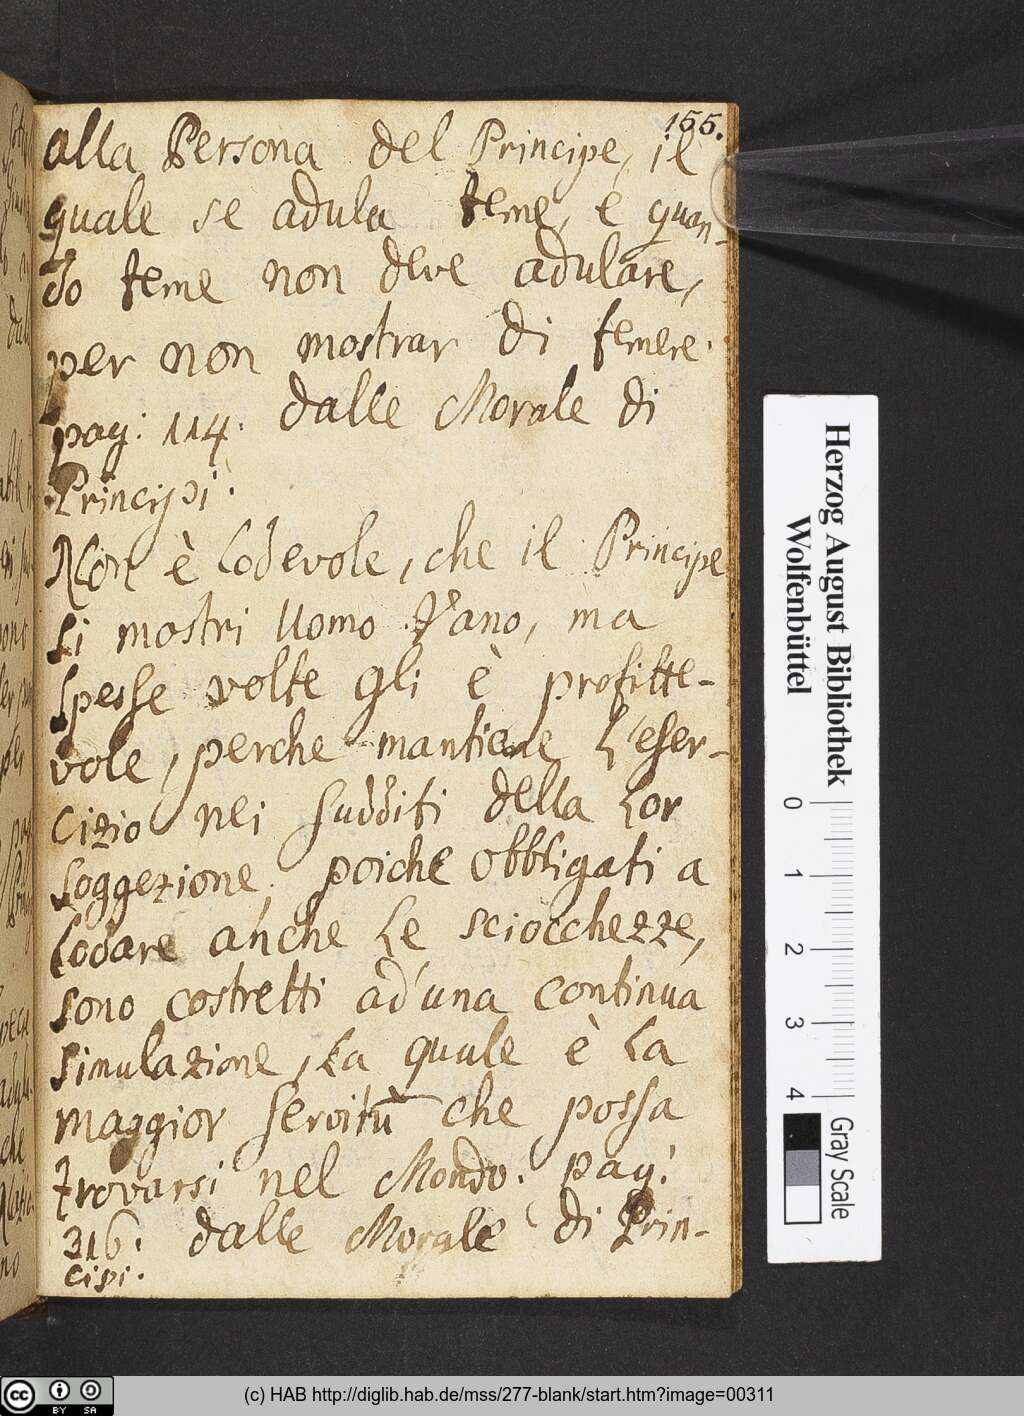 155.
alla Persona del Principe, il
quale se adula teme, e quan-
do teme non deve adulare,
per non mostrar di temere.
pag: 114. dalle Morale di
Principi.
Non è lodevole, che il Principe
si mostri Uomo Vano, ma
spesse volte gli è profitte-
vole, perche mantiene l'eser-
cizio nei sudditi della lor
soggezione, poiche obbligati a
lodare anche le sciocchezze,
sono costretti ad'una continua
simulazione, la quale è la
maggior servitù che possa
trovarsi nel Mondo. pag:
316. dalle Morale di Prin-
cipi.
Herzog August Bibliothek
Wolfenbüttel
0 1 2 3 4
Gray Scale
cc BY SA
(c) HAB http://diglib.hab.de/mss/277-blank/start.htm?image=00311